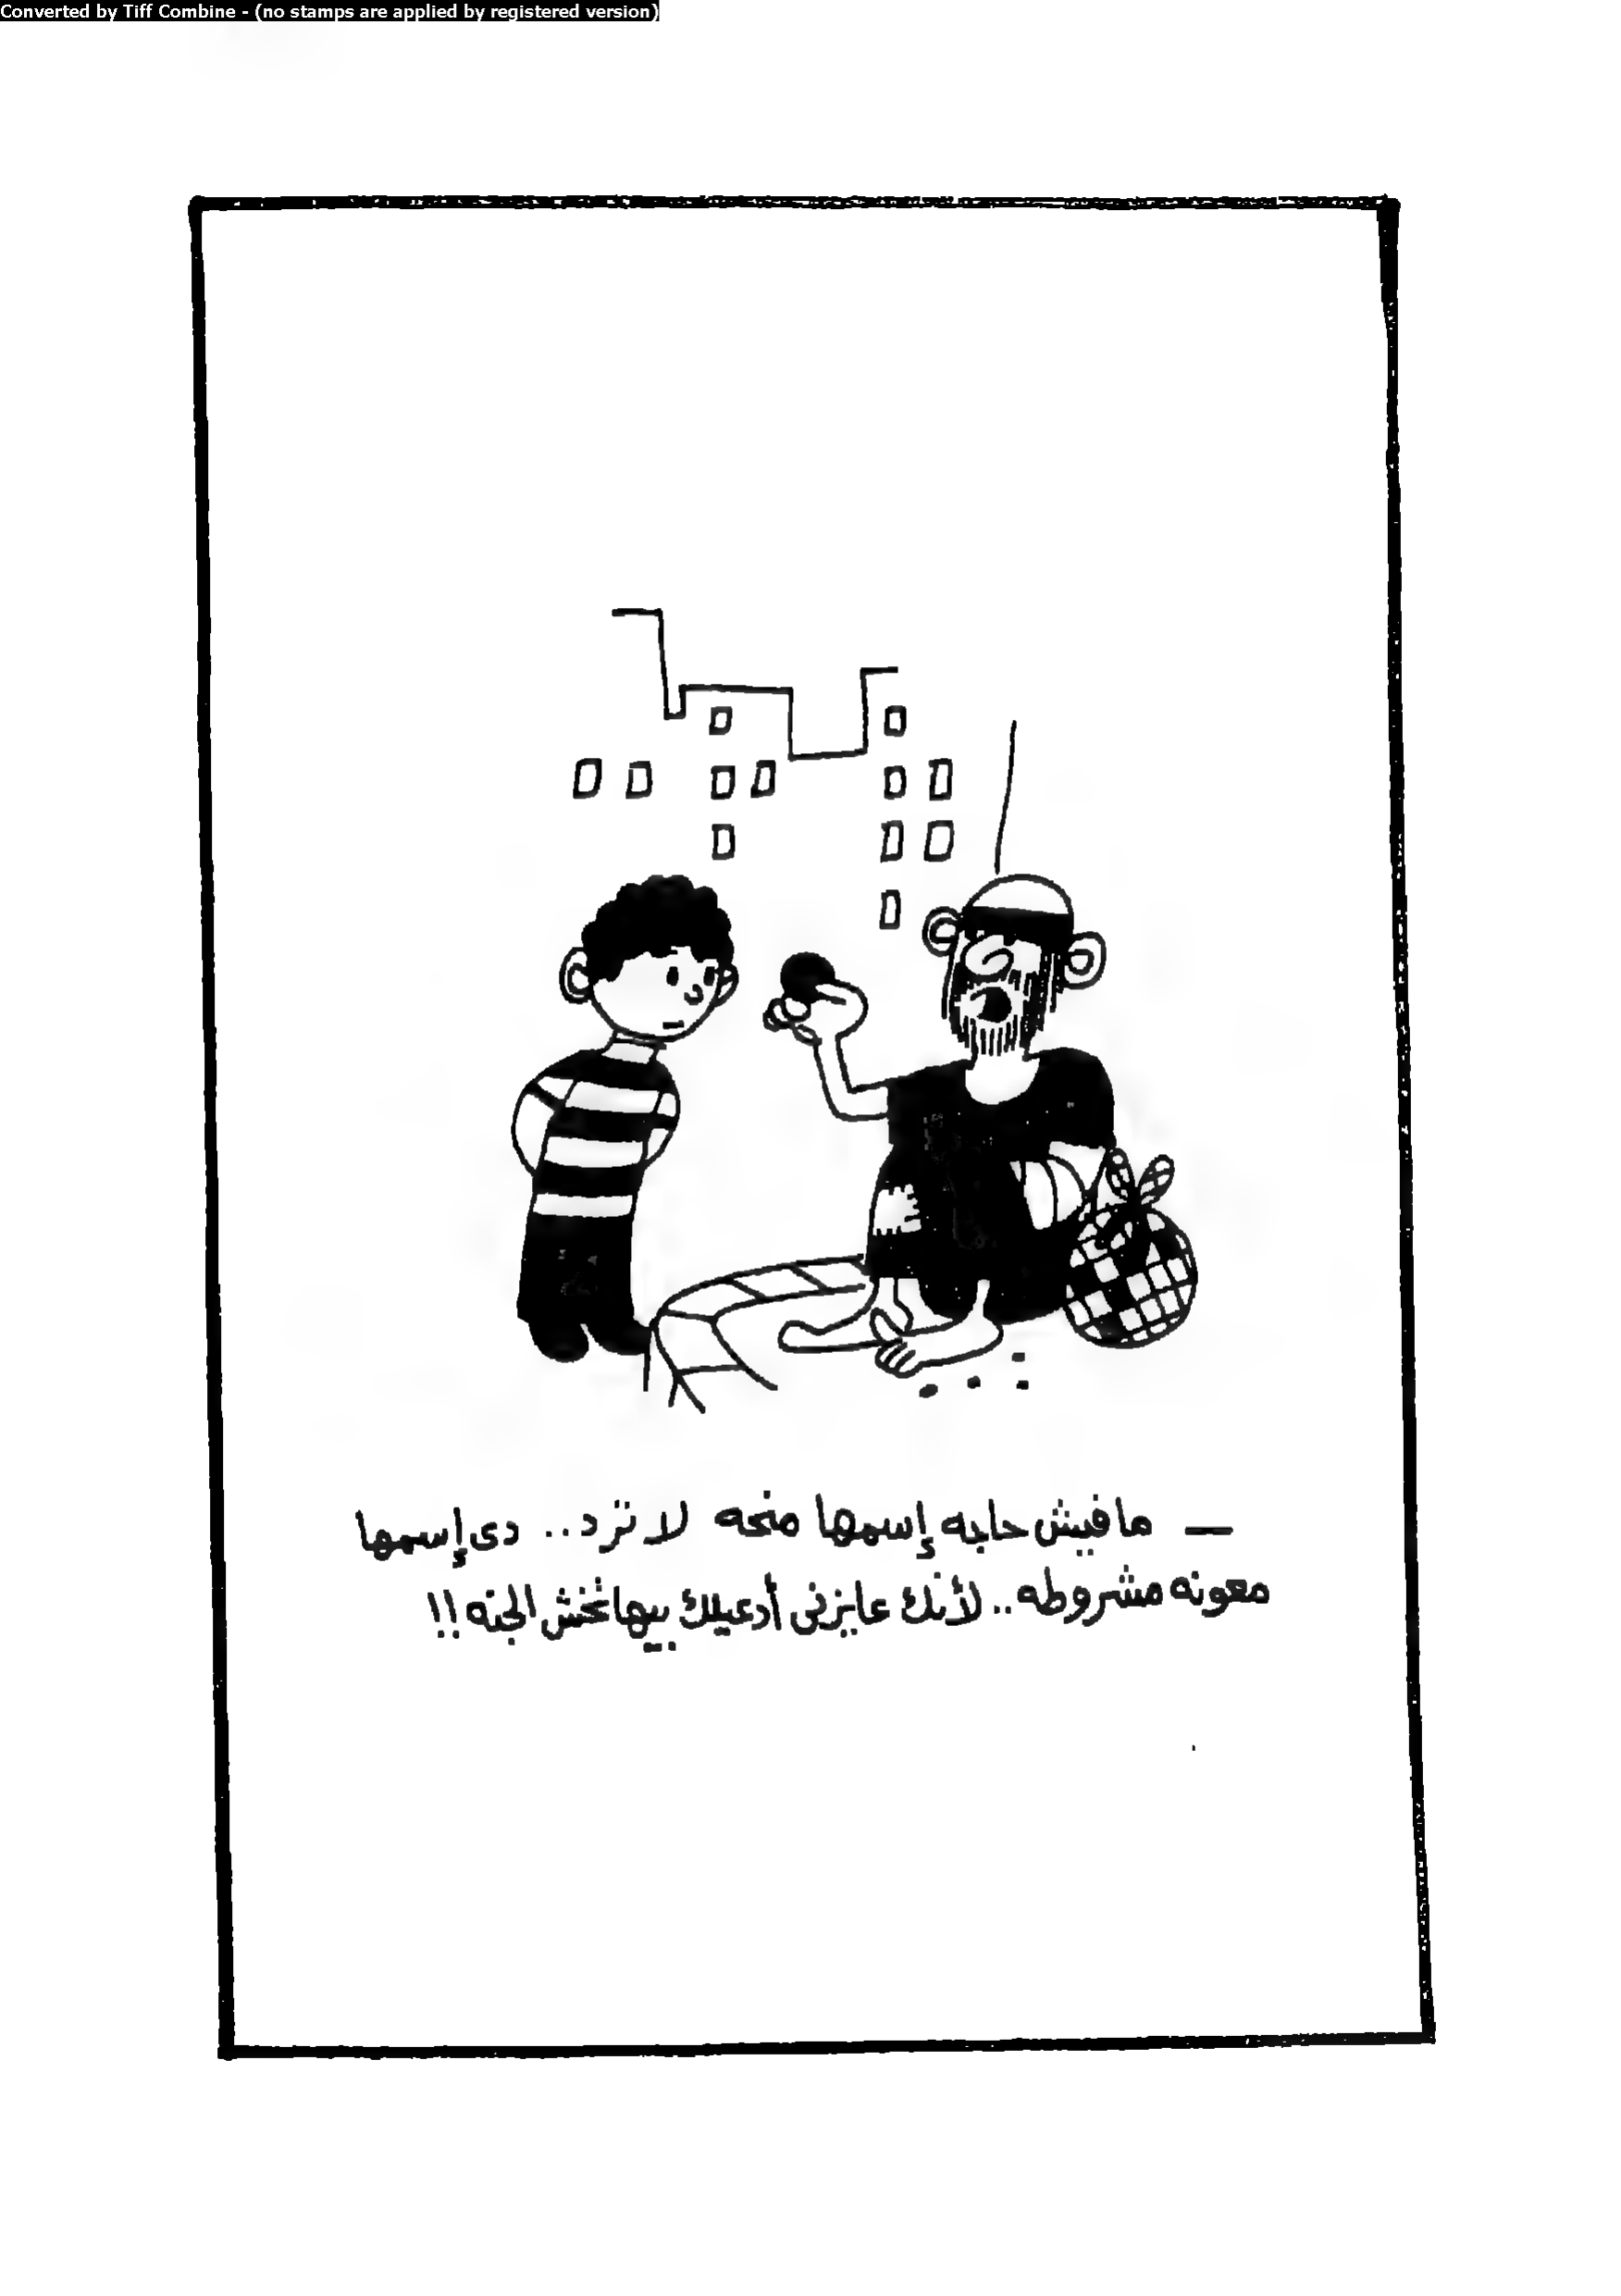 Converted by Tiff Combine - (no stamps are applied by registered version)
— مافيش حاجه إسمها منحه لا ترد .. دى إسمها
معونه مشروطه .. لأنك عايزنى أدعيلك بيها تخش الجنه !!